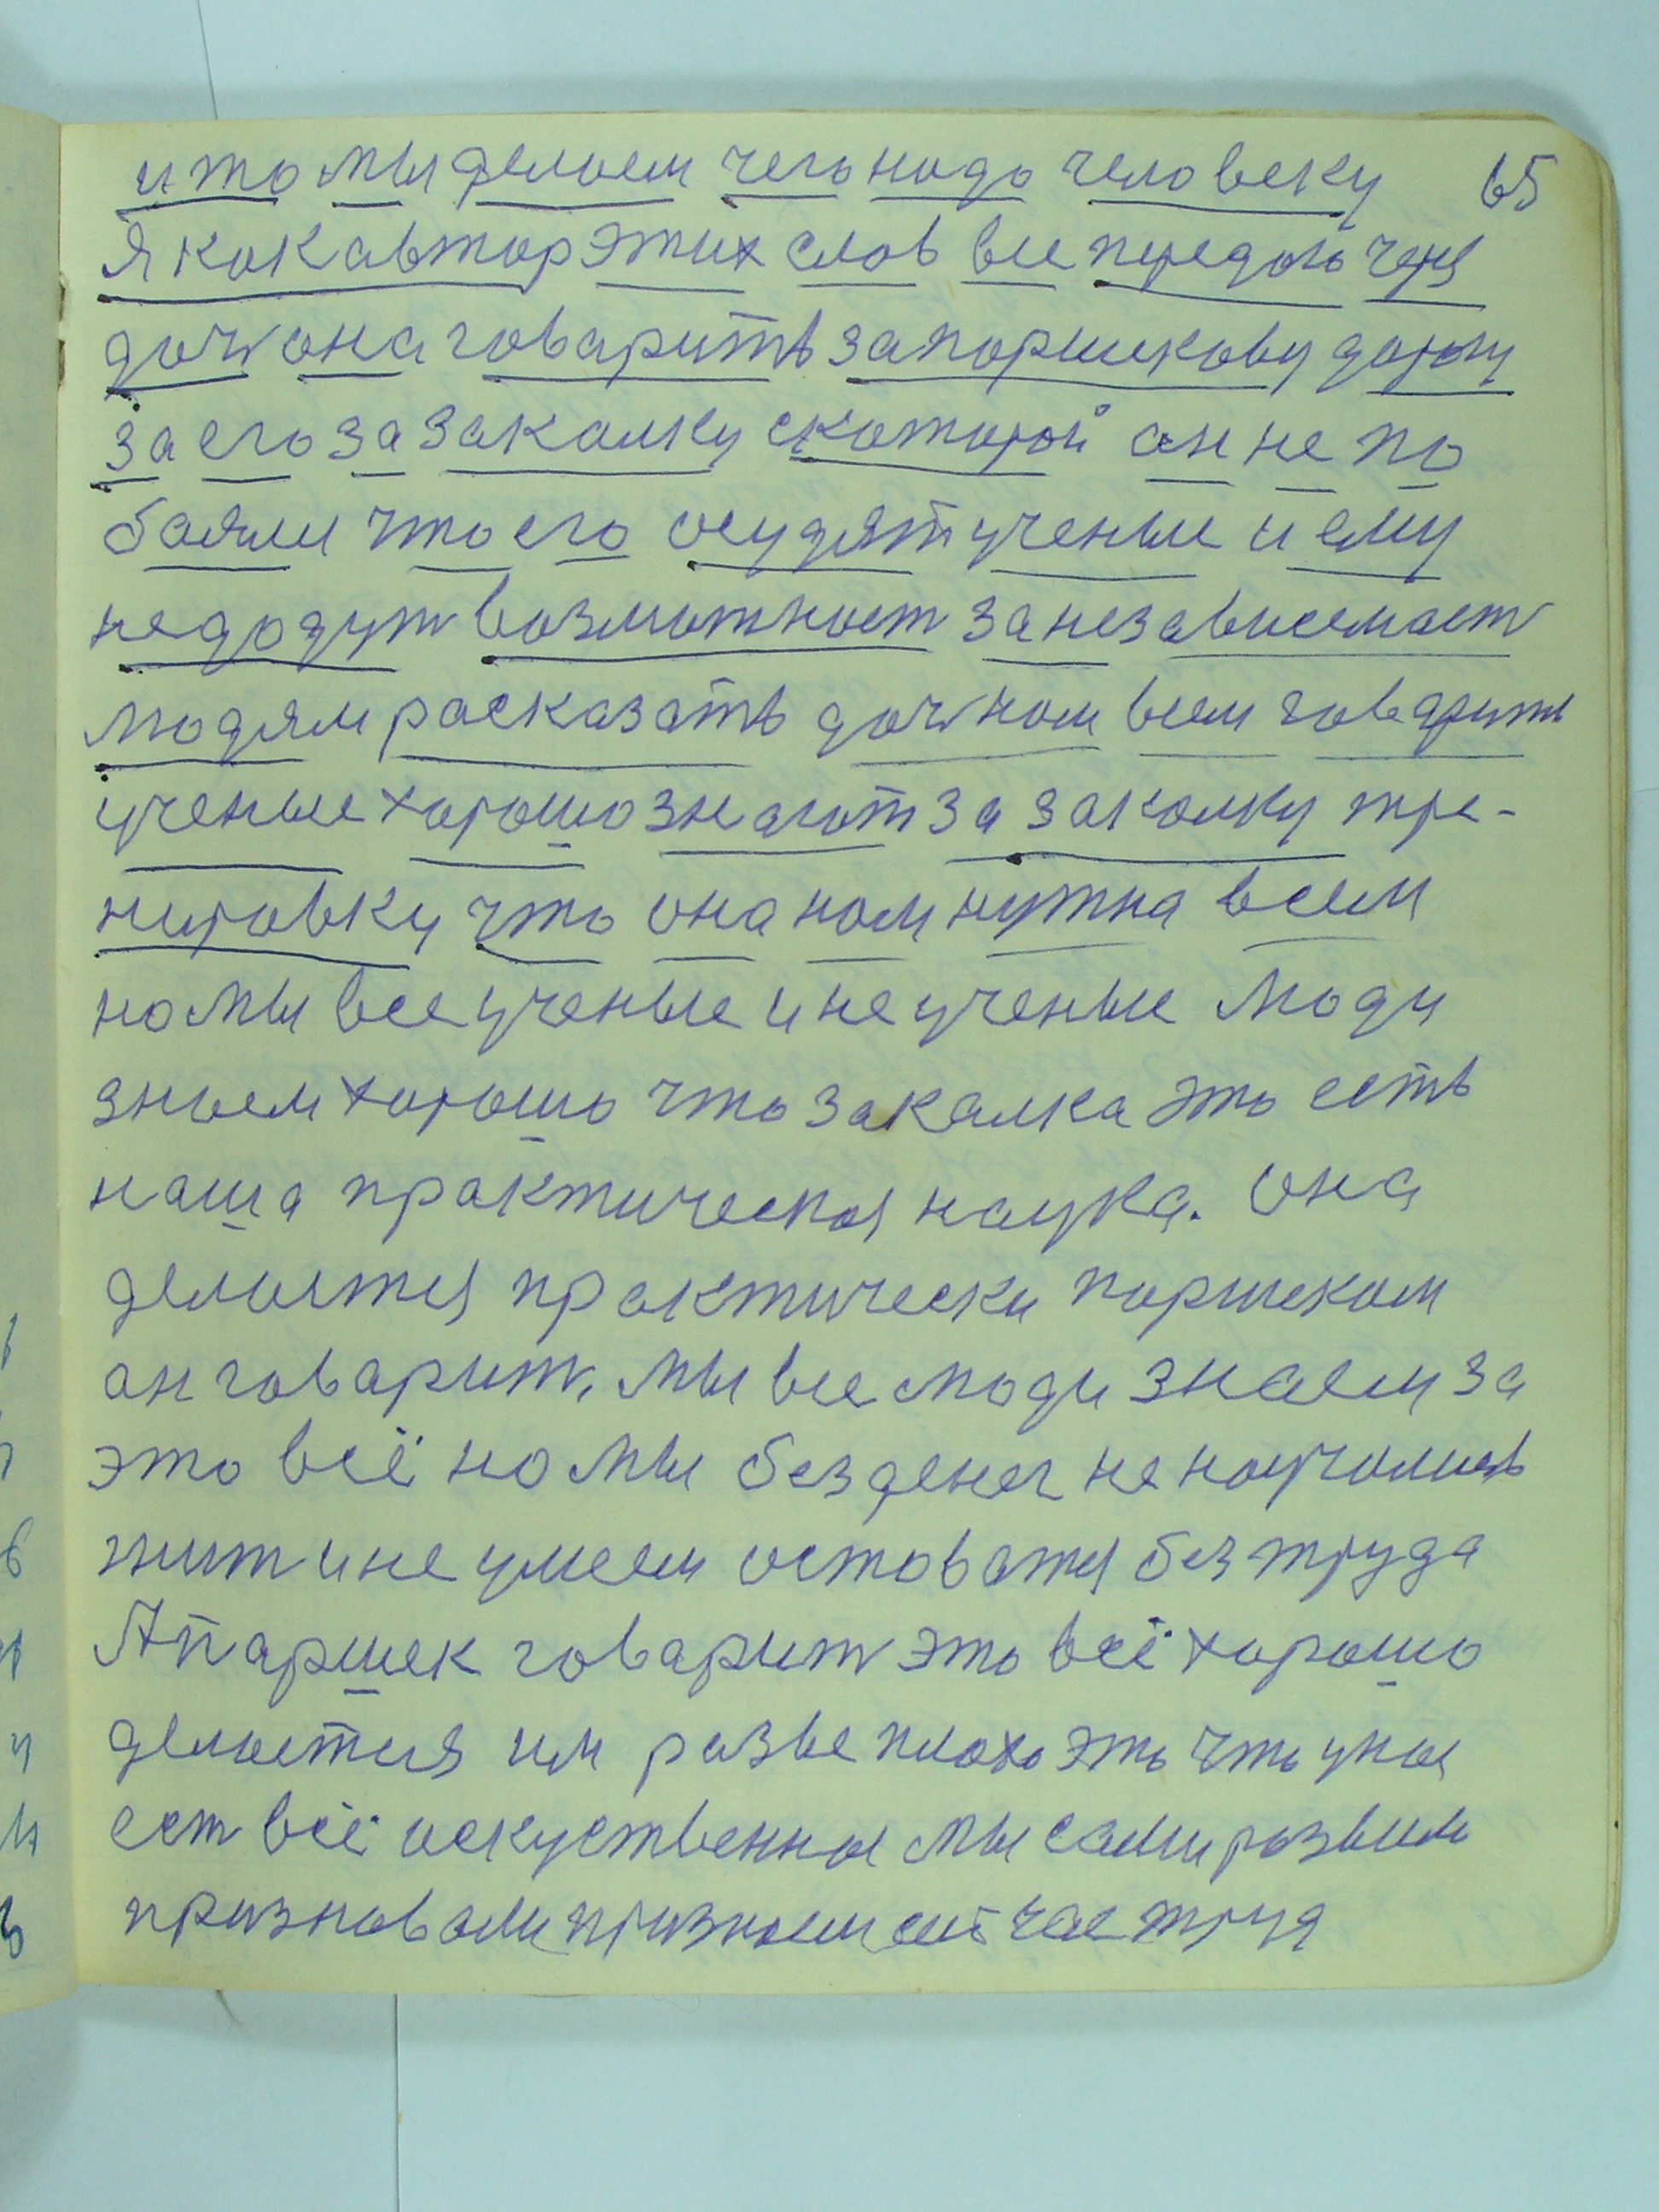 и то мы делоем чего надо человеку 65
Я как автор этих слов все передаю через
доч она говарить за поршекову дорогу
за его за закалку с которой ан не по
баяли что его осудят ученые и ему
не дадут возможност за независемаст
людям расказать доч нам всем говарить
ученые хорошо знают за закалку тре-
нировку что она нам нужна всем
но мы все ученые и не ученые люди
знаем хорошо что закалка это есть
наша практическоя наука. Она
делается практически поршеком
ан говарит, мы все люди знаем за
это всё но мы без денег не научались
жит и не умеем оставатся без труда
А паршек говарит это всё хорошо
делается им разве плохо это что у нас
ест всё искуственное мы сами развили
признавали признаем сейчас труд